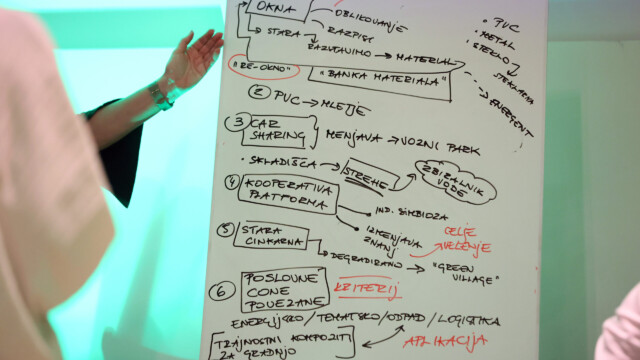 OKNA
OBLIKOVANJE
RAZPISI
STARA
RAZSTAVIMO → MATERIAL
"RE-OKNO"
"BANKA MATERIALA"
• PVC
• METAL
• STEKLO
STEKLARNA
ENERGENT
② PVC → MLETJE
③ CAR
SHARING
MENJAVA → VOZNI PARK
• SKLADIŠČA → STREHE
ZBIRALNIK
VODE
④ KOOPERATIVA
PLATFORMA
IND. SIMBIOZA
IZMENJAVA
ZNANJ
CELJE
VELENJE
⑤ STARA
CINKARNA
DEGRADIRANO → "GREEN
VILLAGE"
⑥ POSLOVNE
CONE
POVEZANE
KRITERIJ
ENERGIJSKO / TEMATSKO / ODPAD / LOGISTIKA
TRAJNOSTNI KOMPOZITI
ZA GRADNJO
APLIKACIJA